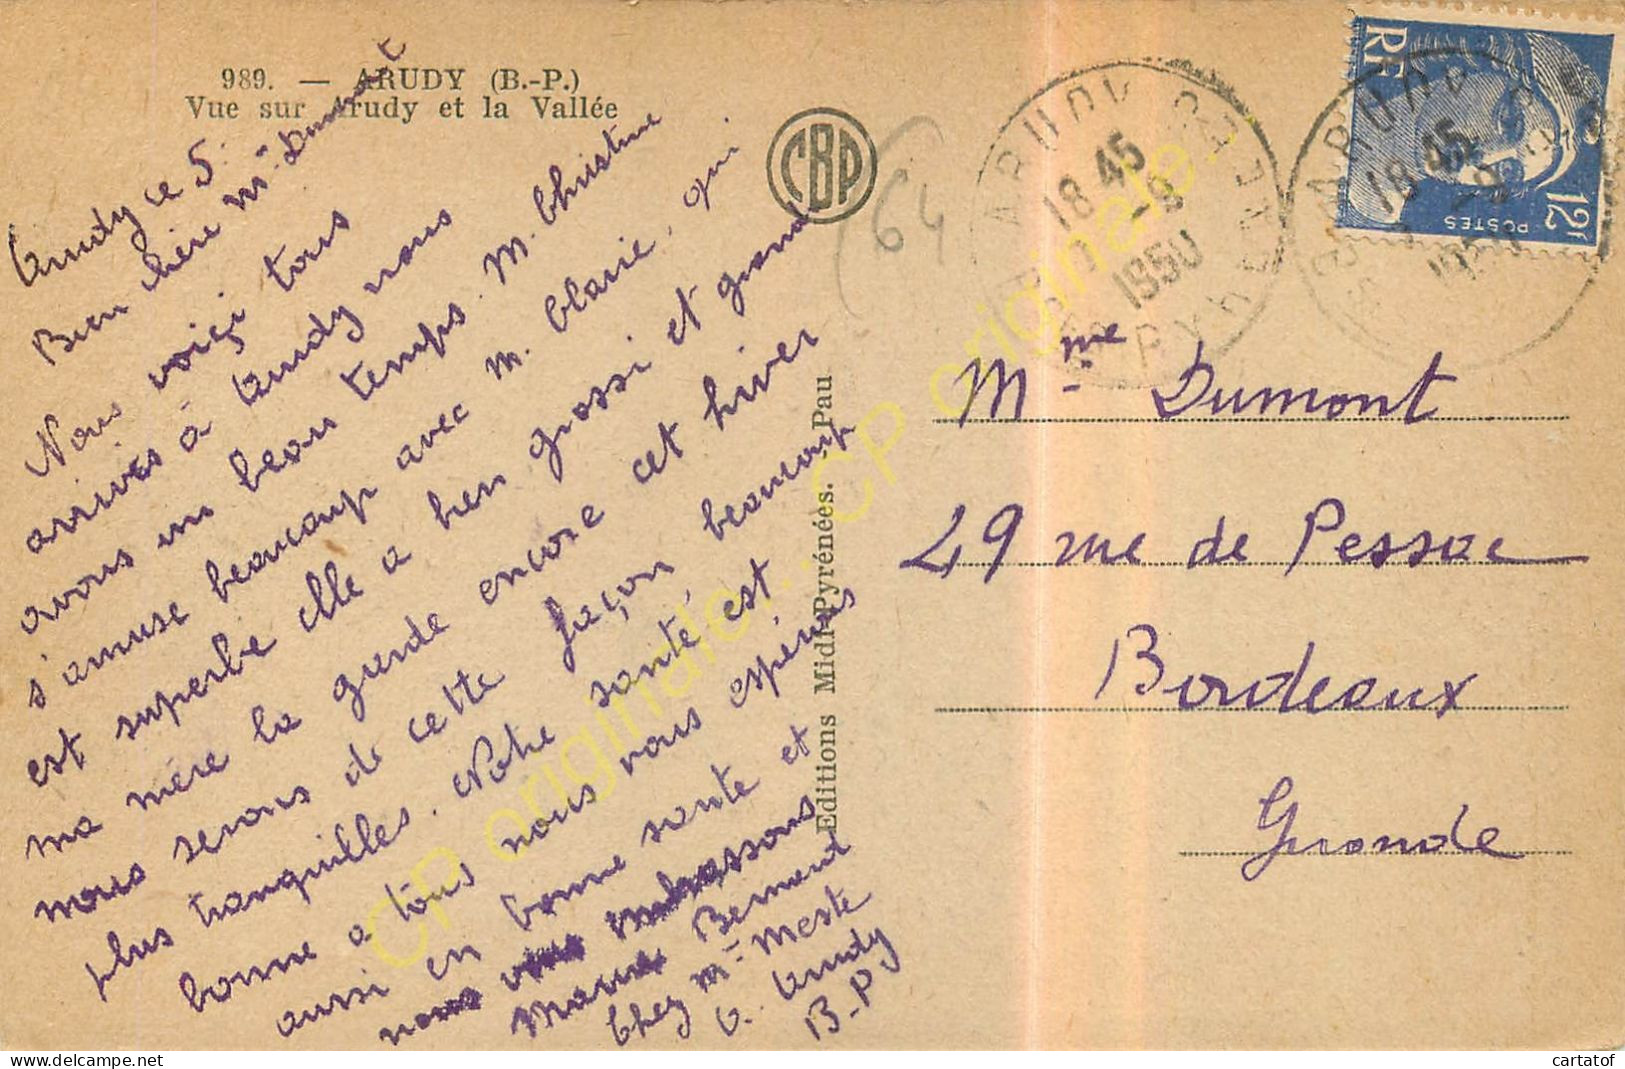 989. — ARUDY (B.-P.)
Vue sur Arudy et la Vallée
CBP
64
Arudy ce 5.
Bien chère Mme Dumont
Nous voiçi tous
arrivés à Arudy nous
avons un beau temps. M. Christine
s'amuse beaucoup avec M. Clarie, qui
est superbe elle a bien grossi et grandi
ma mère la garde encore cet hiver
nous serons de cette façon beaucoup
plus tranquilles. Notre santé est
bonne a tous nous vous espérons
aussi en bonne sante et
nous vous embrassons
Chez Mme Meste
à Arudy
B-P
Editions Midi-Pyrénées. Pau
ARUDY
18 45
-9
1950
RF
POSTES
12F
ARUDY
18 45
-9
Mme Dumont
29 rue de Pessac
Bordeaux
Gironde
CP originale... CP originale...
cartatof